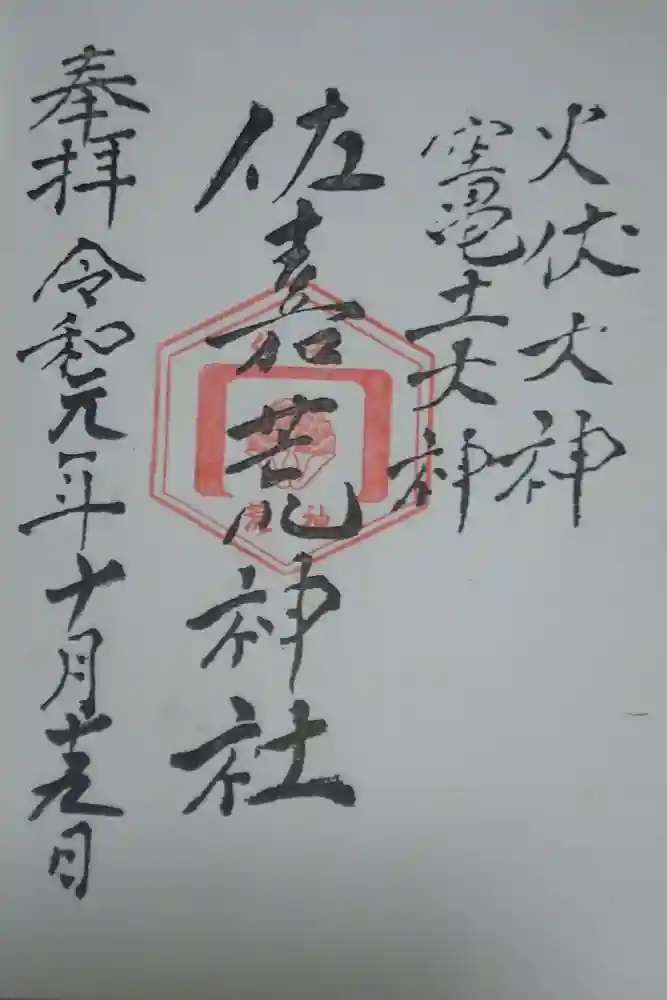 火伏大神
竃土大神
佐嘉荒神社
荒神
奉拝 令和元年十月日